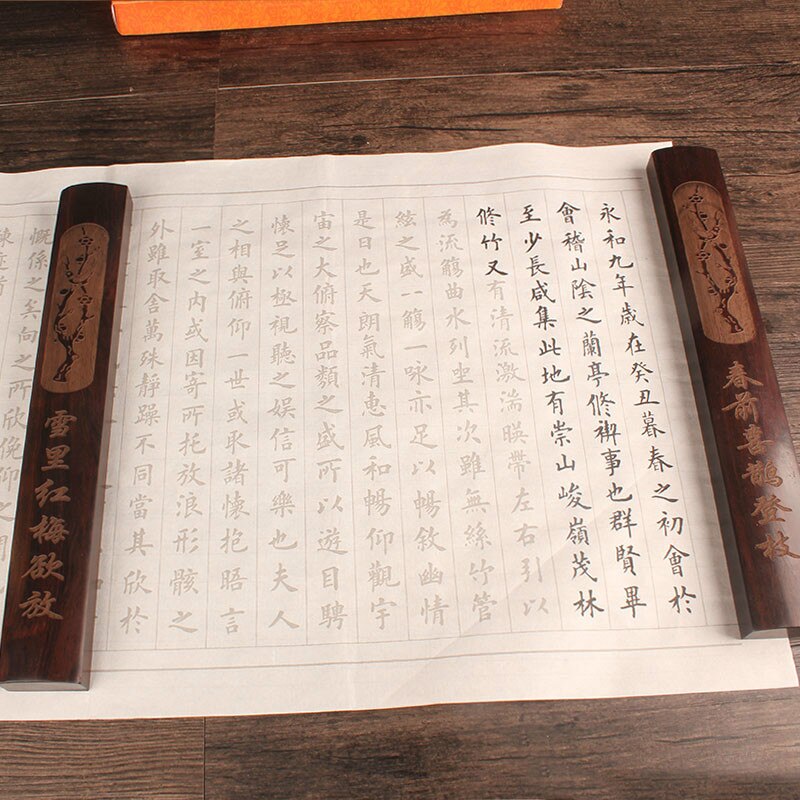 春前喜鹊登枝
永和九年歲在癸丑暮春之初會於
會稽山陰之蘭亭修禊事也群賢畢
至少長咸集此地有崇山峻嶺茂林
修竹又有清流激湍暎帶左右引以
為流觴曲水列坐其次雖無絲竹管
絃之盛一觴一詠亦足以暢敘幽情
是日也天朗氣清惠風和暢仰觀宇
宙之大俯察品類之盛所以遊目騁
懷足以極視聽之娛信可樂也夫人
之相與俯仰一世或取諸懷抱晤言
一室之內或因寄所托放浪形骸之
外雖取舍萬殊靜躁不同當其欣於
雪里红梅欲放
慨係之矣向之所欣俛仰之